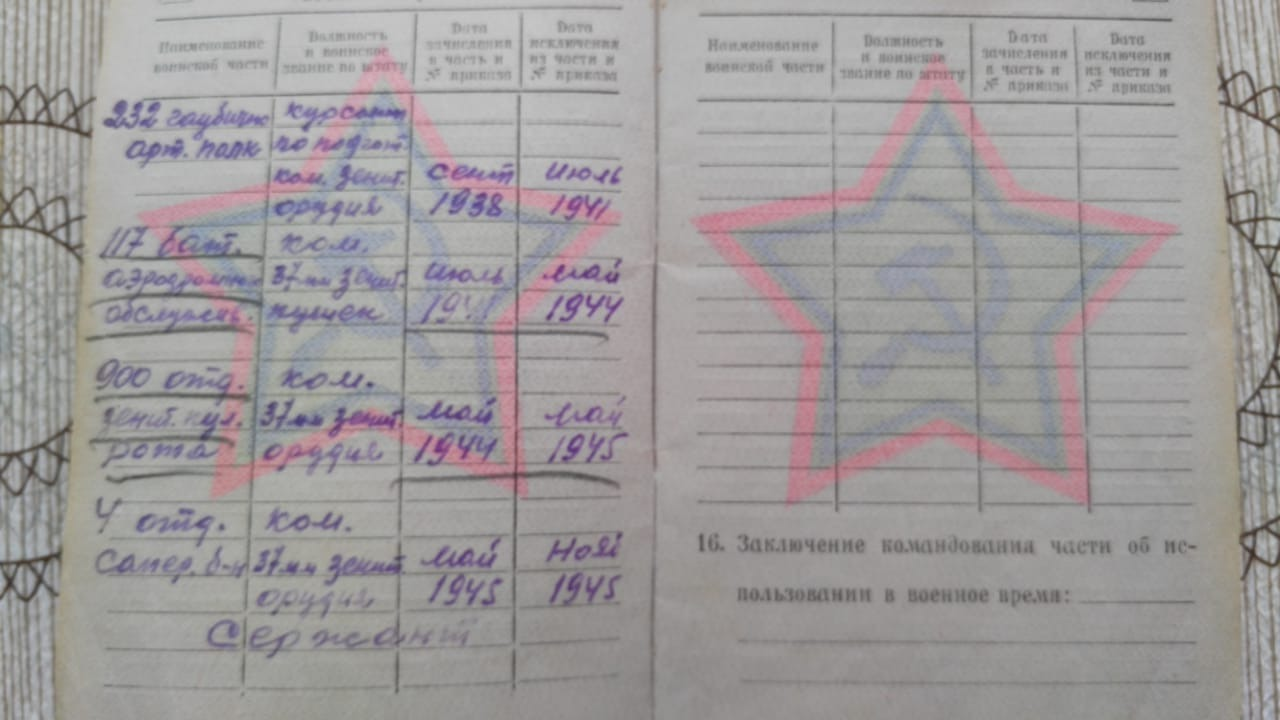 Наименование воинской части
Должность и воинское звание по штату
Дата зачисления в часть и № приказа
Дата исключения из части и № приказа
232 гаубично курсант
арт. полк по подгот.
ком. зенит. сент июль
орудия 1938 1941
117 бат. ком.
аэродромно 37мм зенит. июль май
обслужив. пушек 194 1944
900 отд. ком.
зенит. пул. 37мм зенит. май май
рота орудия 1944 1945
4 отд. ком.
Сапер. б-н 37мм зенит. май Нояб
орудия 1945 1945
Сержант
Наименование воинской части
Должность и воинское звание по штату
Дата зачисления в часть и № приказа
Дата исключения из части и № приказа
16. Заключение командования части об ис-
пользовании в военное время: